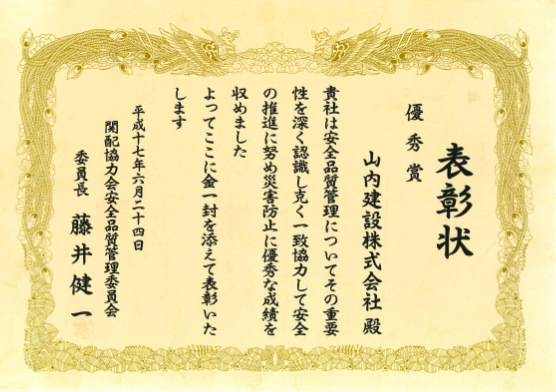 表彰状
優秀賞
山内建設株式会社殿
貴社は安全品質管理についてその重要
性を深く認識し克く一致協力して安全
の推進に努め災害防止に優秀な成績を
収めました
よってここに金一封を添えて表彰いた
します
平成十七年六月二十四日
関配協力会安全品質管理委員会
委員長 藤井健一